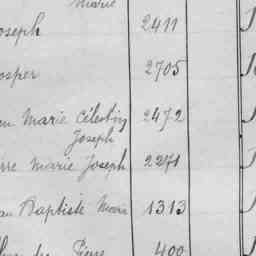 Marie
oseph 2411
osper 2705
Marie Célestin 2472
Joseph
rre Marie Joseph 2271
Baptiste Marie 1313
Pierre 400